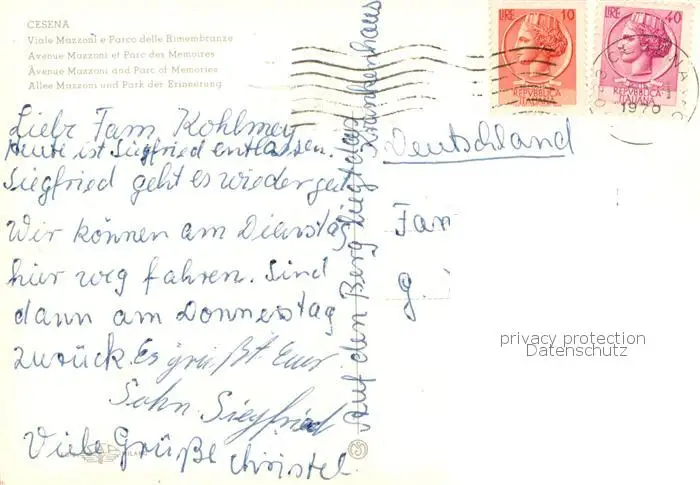 CESENA
Viale Mazzoni e Parco delle Rimembranze
Avenue Mazzoni et Parc des Memoires
Avenue Mazzoni and Parc of Memories
Allee Mazzoni und Park der Erinnerung
LIRE 10
REPVBBLICA
ITALIANA
LIRE 40
REPVBBLICA
ITALIANA
1976
Liebe Fam Kohlmey
Heute ist Siegfried entlassen.
Siegfried geht es wieder gut
Wir können am Dienstag
hier weg fahren. Sind
dann am Donnerstag
zurück. Es grüßt Euer
Sohn Siegfried
Viele Grüße Christel.
Auf den Berg liegt das Krankenhaus
Deutschland
Fam
G.
privacy protection
Datenschutz